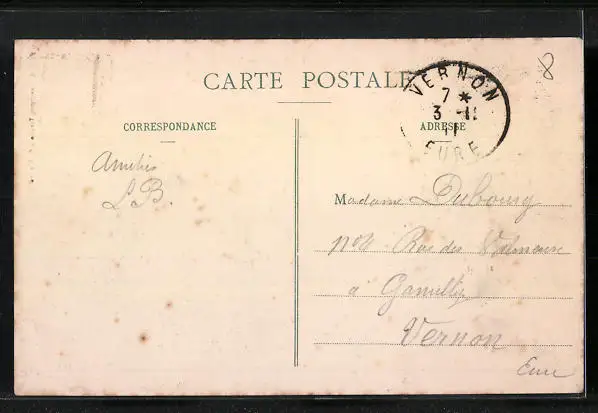 CARTE POSTALE
VERNON
7 *
3 -11
11
EURE
8
CORRESPONDANCE
ADRESSE
Amitiés
LB.
Madame Dubourg
Rue des
à
Vernon
Eure